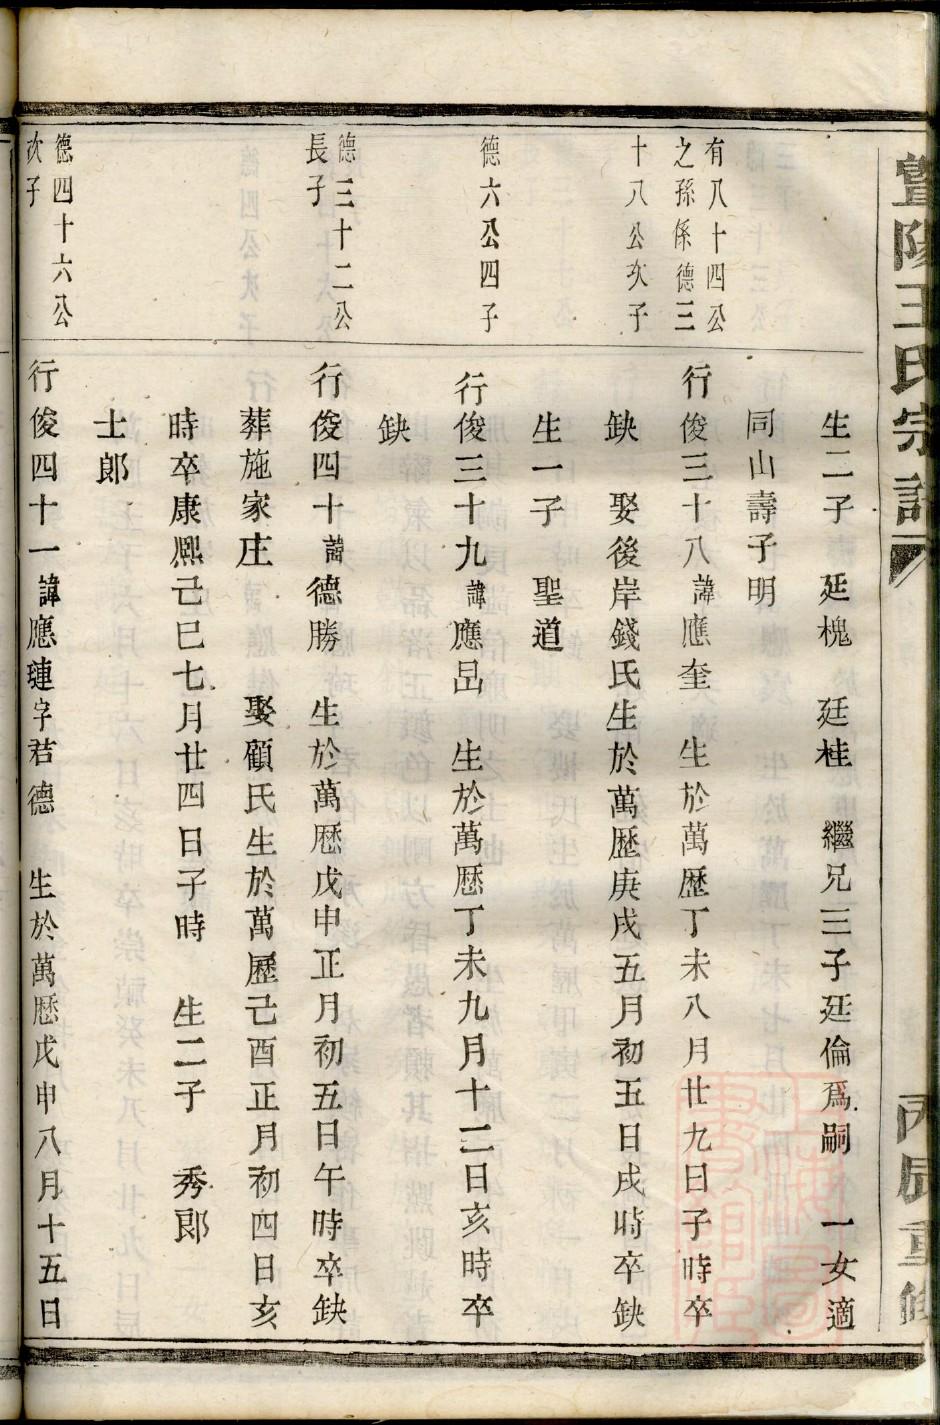 暨陽王氏宗譜
丙辰重修
生二子 廷槐 廷桂 繼兄三子廷倫爲嗣 一女適
同山壽子明
有八十四公
之孫係德三
十八公次子
行俊三十八諱應奎 生於萬歷丁未八月廿九日子時卒
缺 娶後岸錢氏生於萬歷庚戌五月初五日戌時卒缺
生一子 聖道
德六公四子
行俊三十九諱應昷 生於萬歷丁未九月十二日亥時卒
缺
德三十二公
長子
行俊四十諱德勝 生於萬歷戊申正月初五日午時卒缺
葬施家庄 娶顧氏生於萬歷己酉正月初四日亥
時卒康熙己巳七月廿四日子時 生二子 秀郎
士郎
德四十六公
次子
行俊四十一諱應璉字君德 生於萬歷戊申八月十五日